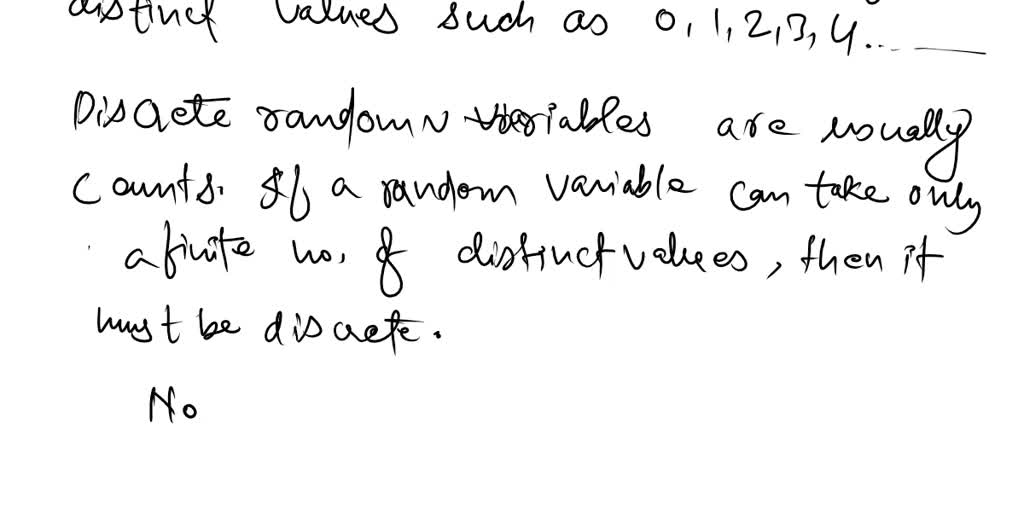 distinct values such as 0, 1, 2, 3, 4...
Discrete random variables are usually
counts. If a random variable can take only
a finite no. of distinct values, then it
must be discrete.
No